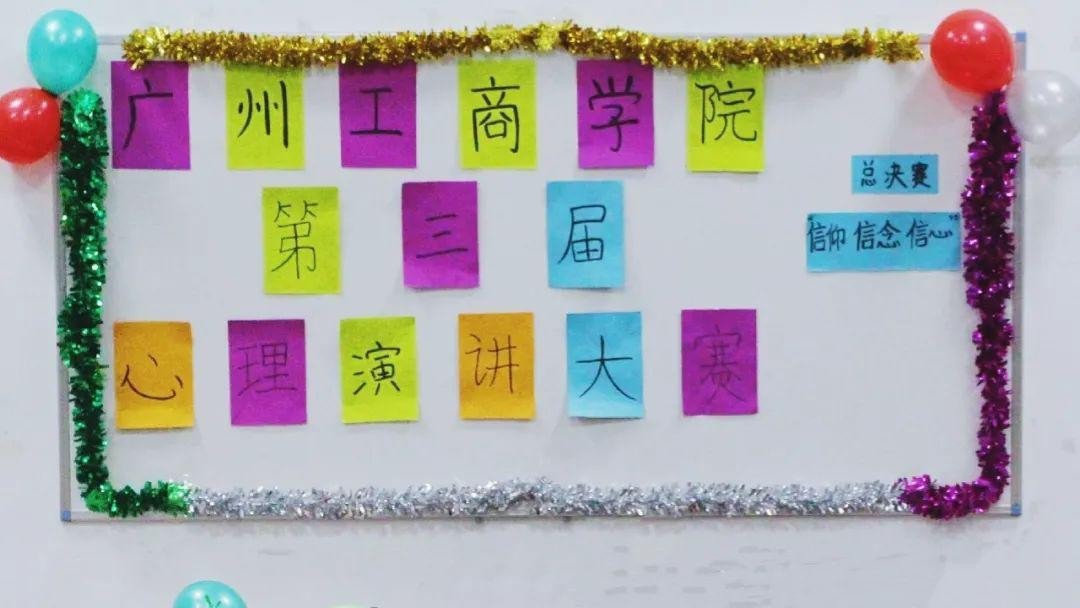 广州工商学院
第三届
心理演讲大赛
总决赛
“信仰 信念 信心”